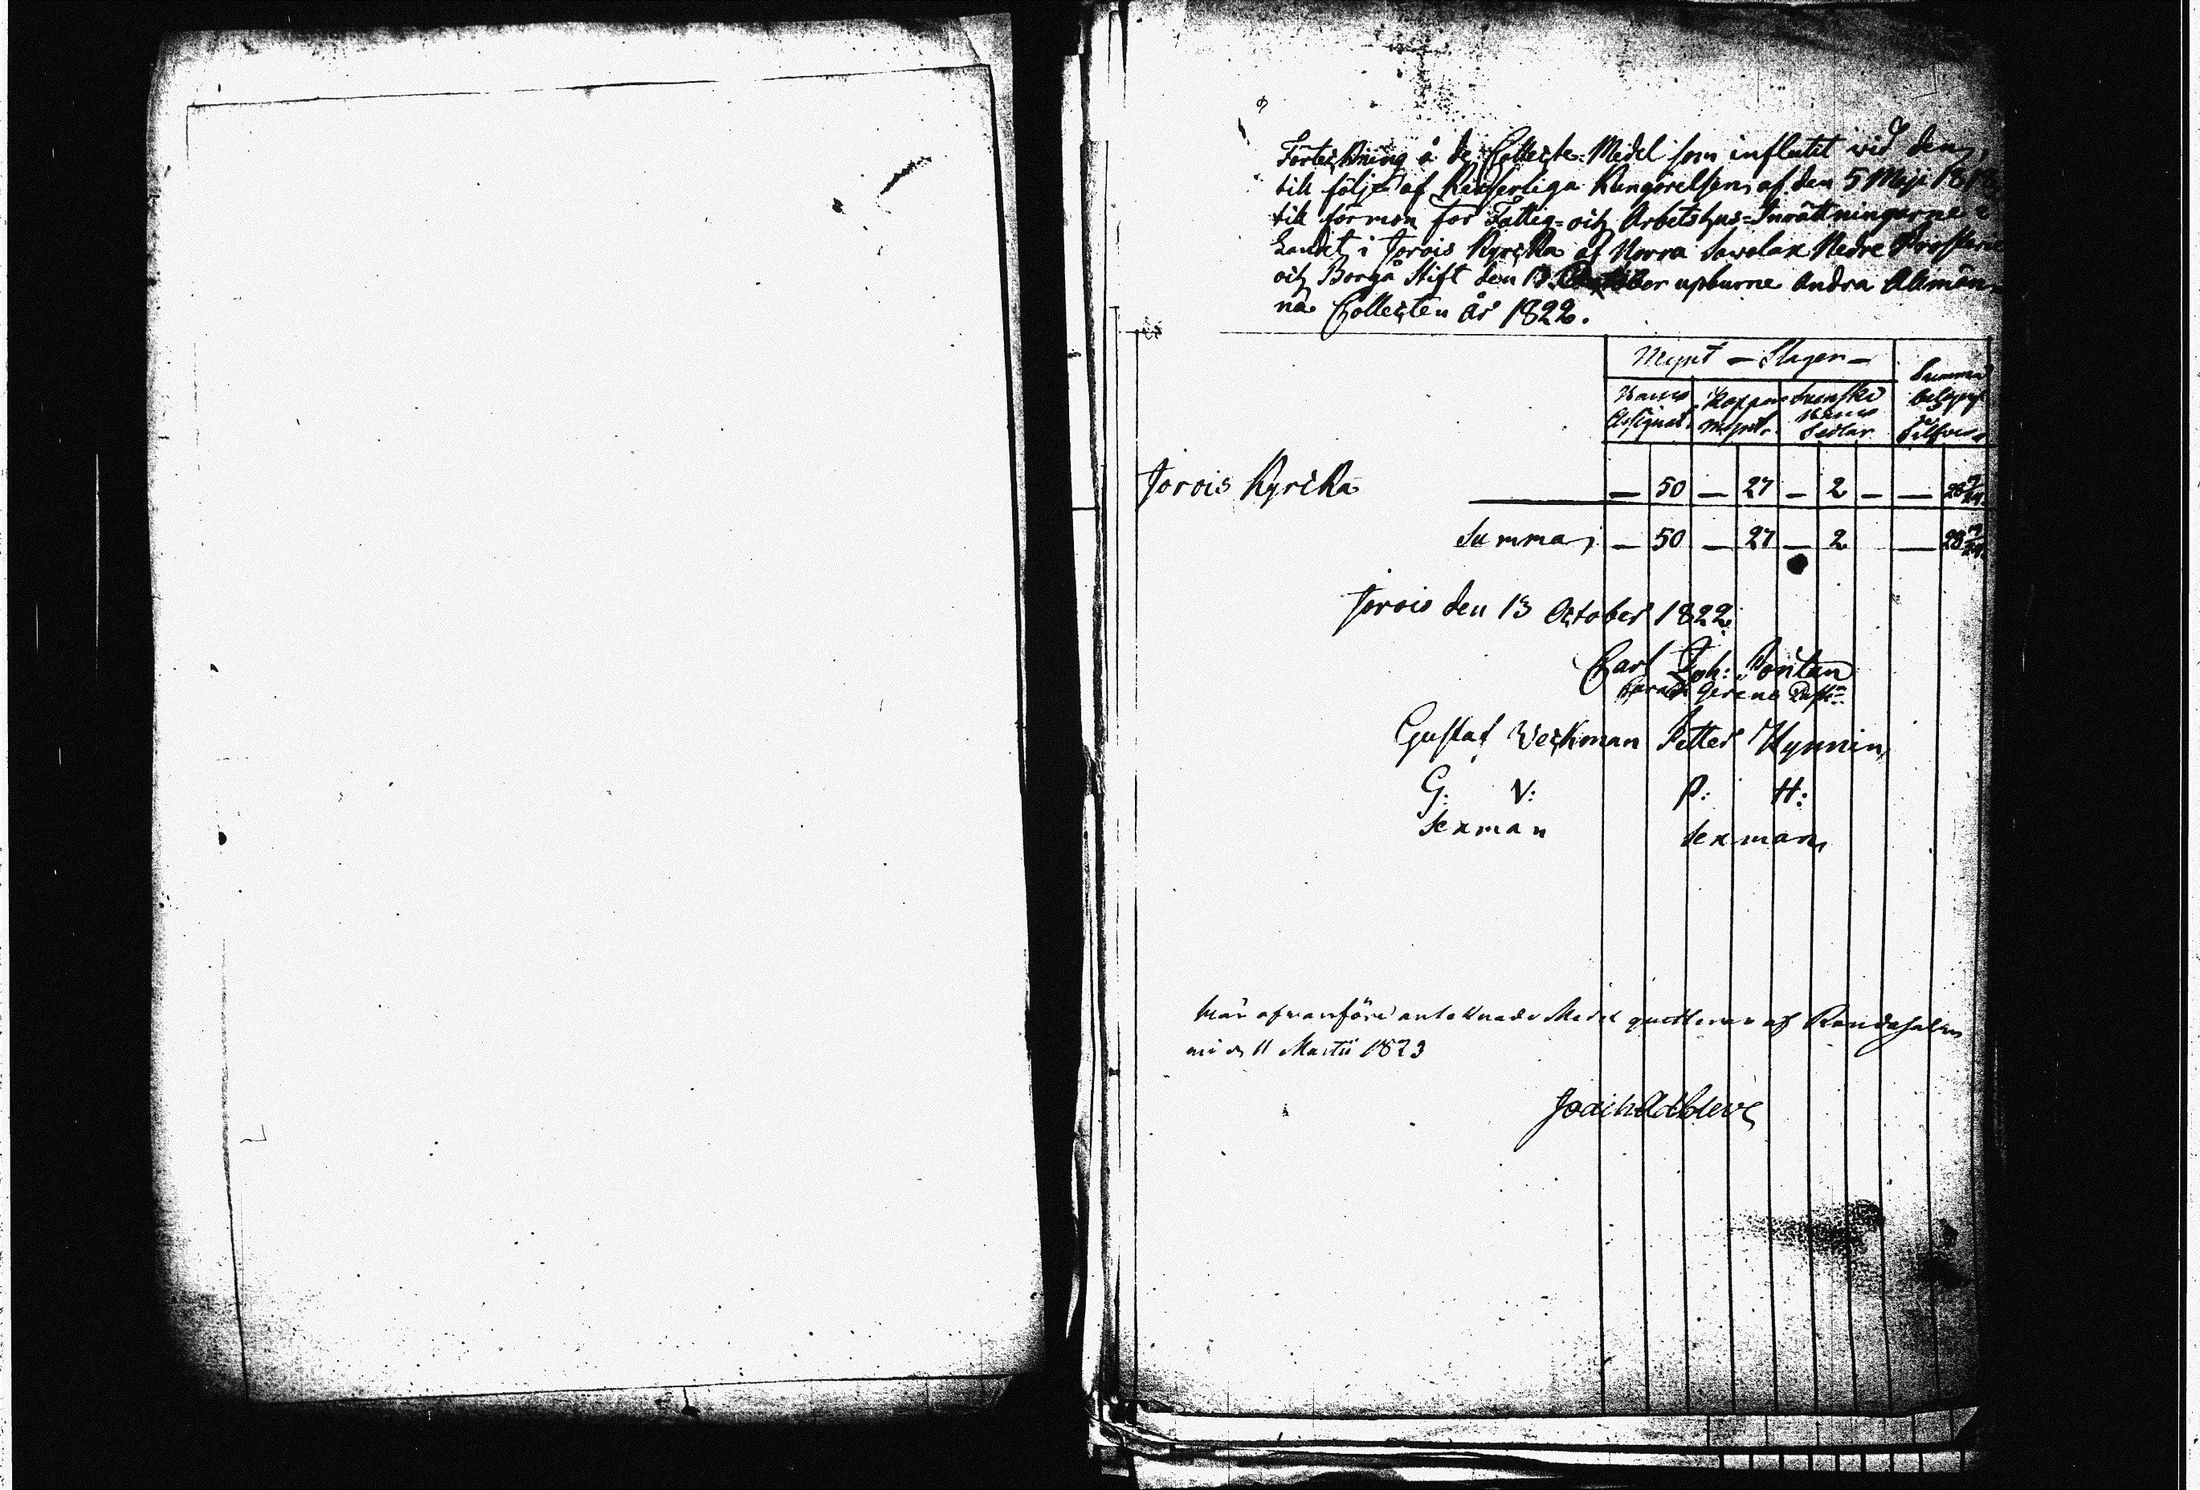 Förteckning å de Collecte-Medel som influtit wid den,
till följe af Kejserliga Kungörelsen af den 5 Maji 1818
till förmon för Fattig- och Arbetshus-Inrättningarne i
Landet i Jorois Kyrcka af Norra Sawolax Nedre Prosteri
och Borgå Stift den 13 October upburne Andra Allmän-
na Collecten År 1822.
Mynt - Slagen -
Banco Assignat. Koppar Mynt. Svenske Banco Sedlar Summa belopp Silfver
Jorois Kyrcka — 50 — 27 — 2 — — 28
Summa, — 50 — 27 — 2 — 28
Jorois den 13 October 1822.
Carl Joh: Pontan
Gustaf Weckman Petter Hynnin,
G: V: P: H:
Sexman Sexman,
afvanföre antecknade Medel af Randasalmi
den 11 Martii 1823